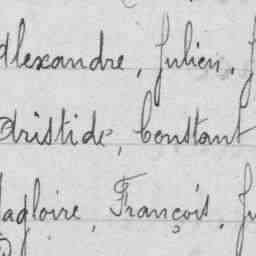 Alexandre, Julien,
Aristide, Constant
Magloire, François,